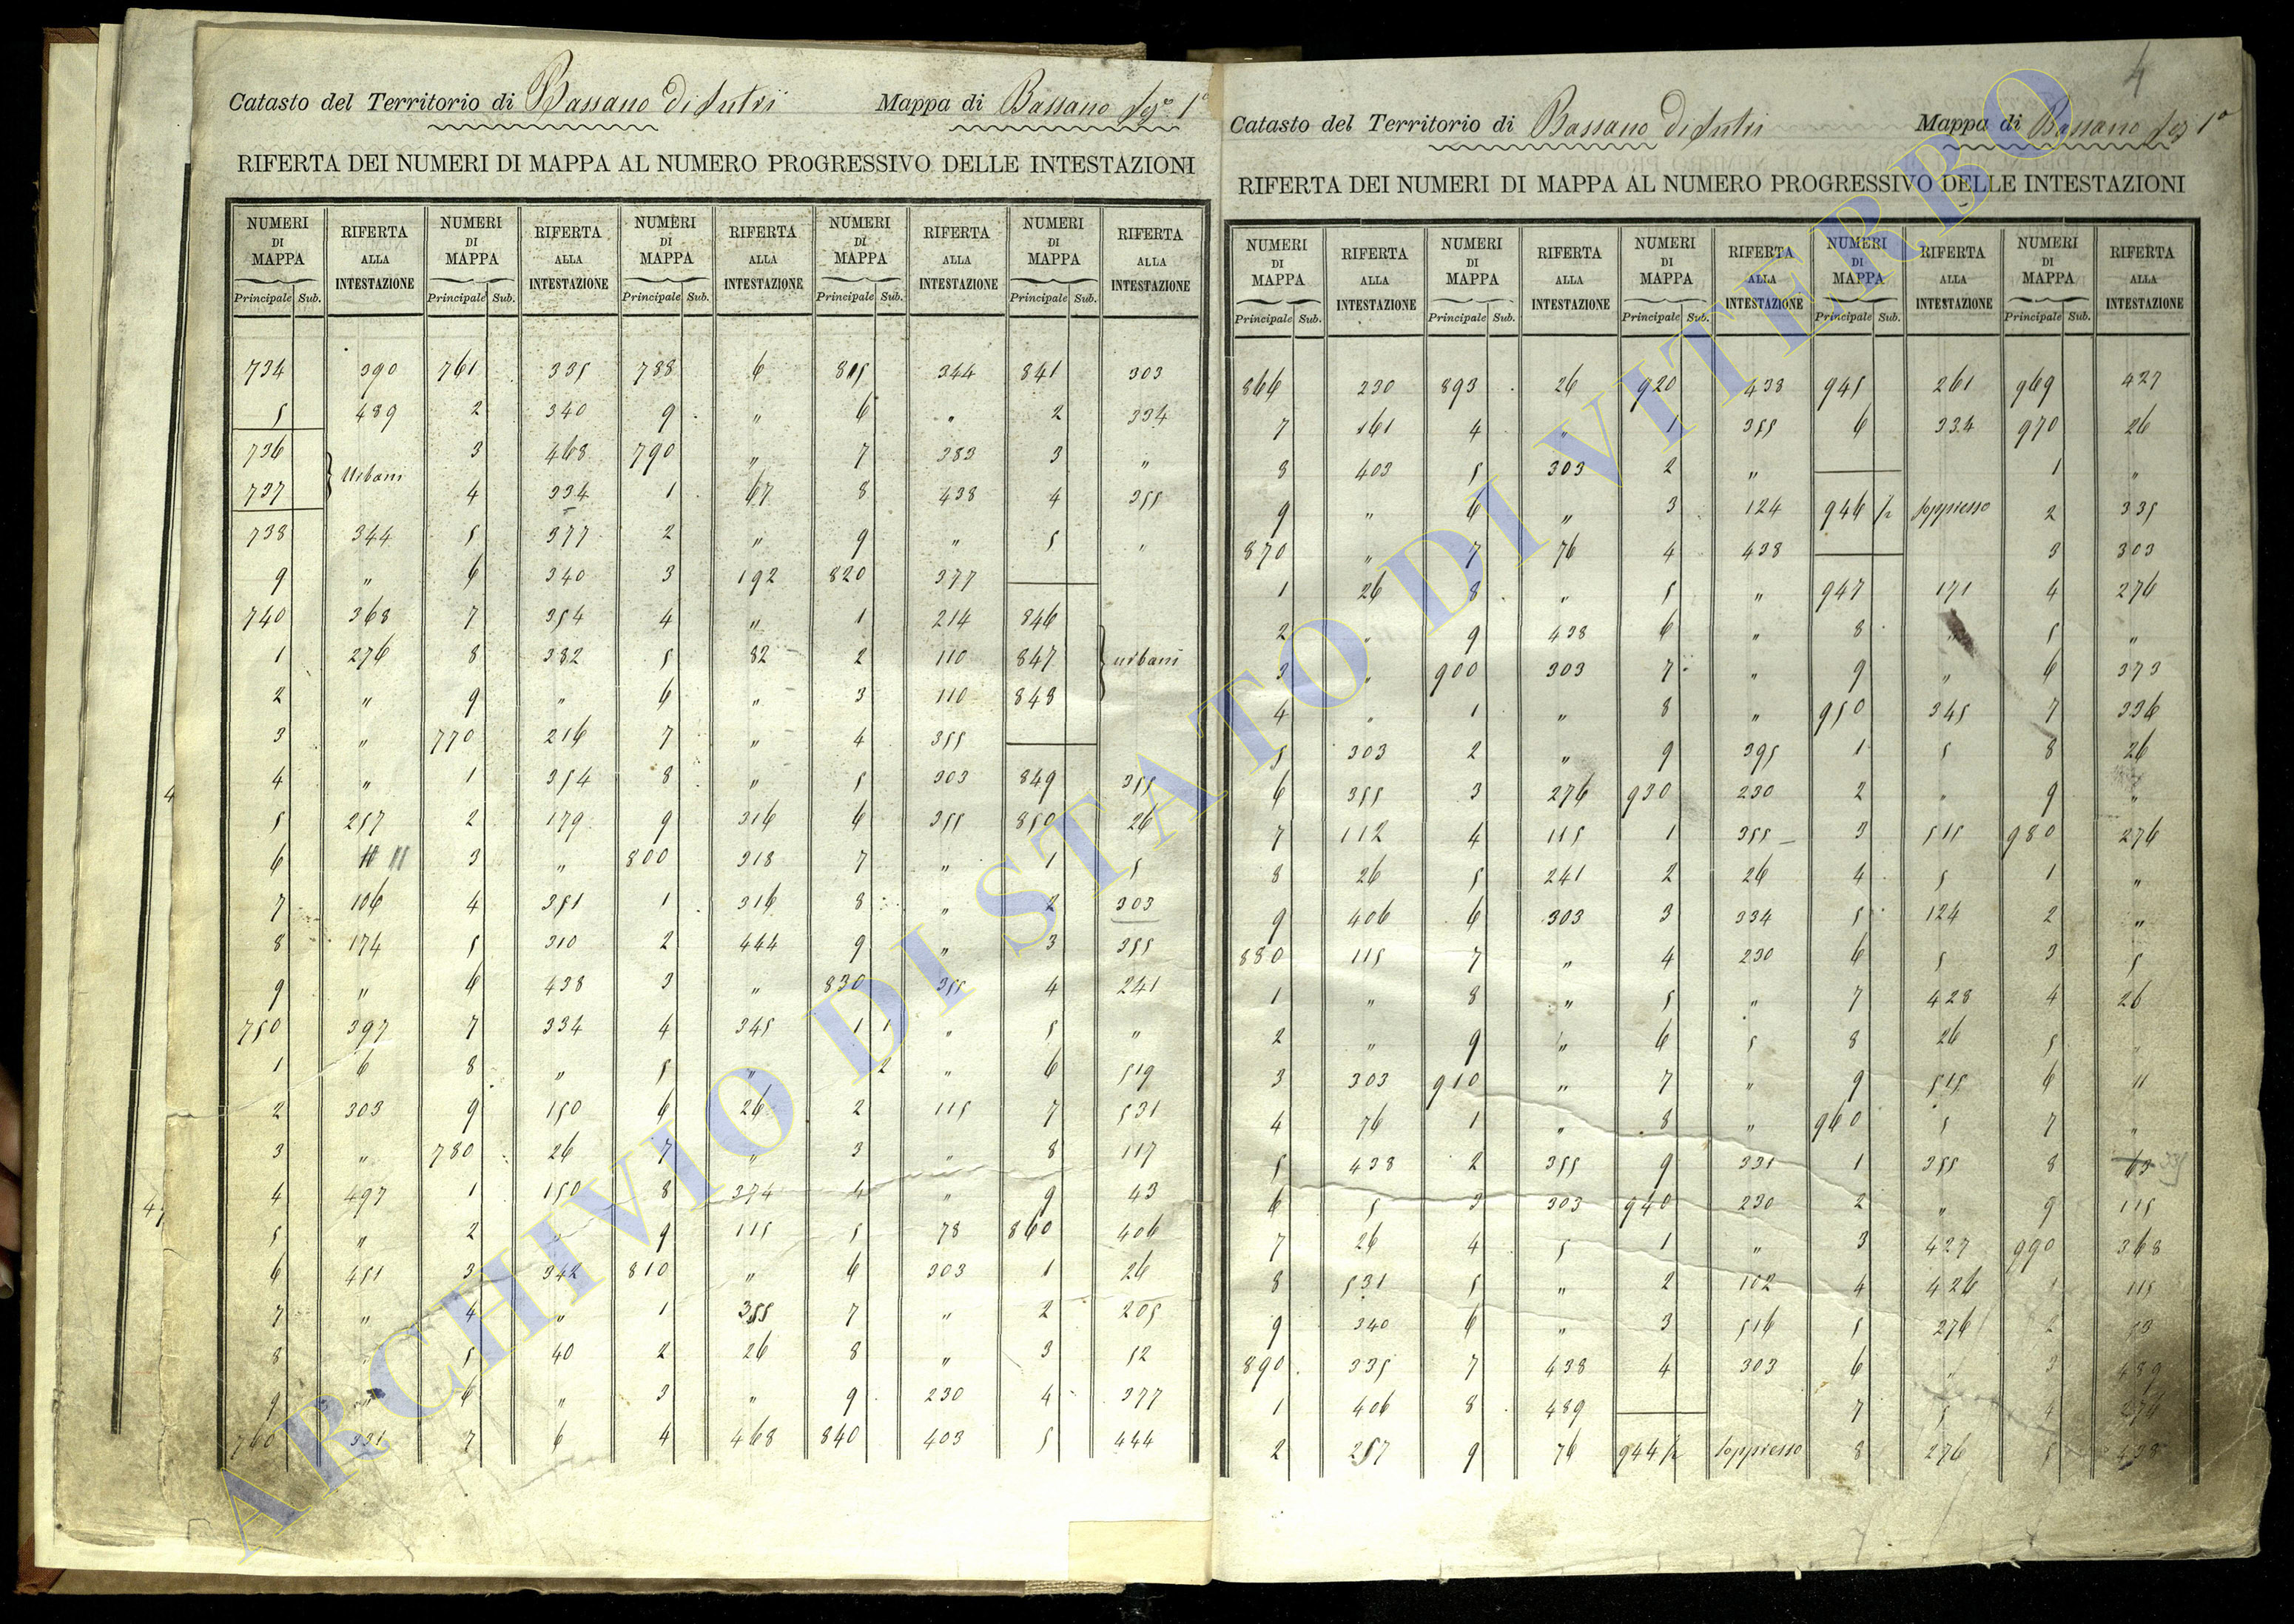 4
Catasto del Territorio di Bassano di Sutri Mappa di Bassano Sez. 1ª
RIFERTA DEI NUMERI DI MAPPA AL NUMERO PROGRESSIVO DELLE INTESTAZIONI
NUMERI DI MAPPA RIFERTA ALLA INTESTAZIONE NUMERI DI MAPPA RIFERTA ALLA INTESTAZIONE NUMERI DI MAPPA RIFERTA ALLA INTESTAZIONE NUMERI DI MAPPA RIFERTA ALLA INTESTAZIONE NUMERI DI MAPPA RIFERTA ALLA INTESTAZIONE
Principale Sub. Principale Sub. Principale Sub. Principale Sub. Principale Sub.
734 390 761 335 788 6 815 344 841 303
5 489 2 340 9 " 6 " 2 334
736 Urbani 3 468 790 " 7 383 3 "
737 4 334 1 67 8 438 4 355
738 344 5 377 2 " 9 " 5 "
9 " 6 340 3 192 820 377
740 368 7 354 4 " 1 214 846
1 276 8 382 5 82 2 110 847 urbani
2 " 9 " 6 " 3 110 848
3 " 770 216 7 " 4 355
4 " 1 354 8 " 5 303 849 355
5 257 2 179 9 316 6 355 850 26
6 11 3 " 800 318 7 " 1 5
7 106 4 351 1 316 8 " 2 303
8 174 5 310 2 444 9 " 3 355
9 " 6 438 3 " 830 355 4 241
750 397 7 334 4 345 1 1 " 5 "
1 6 8 " 5 " 2 " 6 519
2 303 9 150 6 26 2 115 7 531
3 " 780 26 7 " 3 " 8 117
4 497 1 150 8 374 4 " 9 43
5 " 2 " 9 115 5 78 860 406
6 451 3 342 810 " 6 303 1 26
7 " 4 " 1 355 7 " 2 205
8 " 5 40 2 26 8 " 3 52
9 " 6 " 3 " 9 230 4 377
760 331 7 6 4 468 840 403 5 444
Catasto del Territorio di Bassano di Sutri Mappa di Bassano Sez 1ª
RIFERTA DEI NUMERI DI MAPPA AL NUMERO PROGRESSIVO DELLE INTESTAZIONI
NUMERI DI MAPPA RIFERTA ALLA INTESTAZIONE NUMERI DI MAPPA RIFERTA ALLA INTESTAZIONE NUMERI DI MAPPA RIFERTA ALLA INTESTAZIONE NUMERI DI MAPPA RIFERTA ALLA INTESTAZIONE NUMERI DI MAPPA RIFERTA ALLA INTESTAZIONE
Principale Sub. Principale Sub. Principale Sub. Principale Sub. Principale Sub.
866 230 893 26 920 438 945 261 969 427
7 161 4 " 1 355 6 334 970 26
8 403 5 303 2 " 1 "
9 " 6 " 3 124 946 ½ soppresso 2 335
870 " 7 76 4 438 3 303
1 26 8 " 5 " 947 171 4 276
2 " 9 438 6 " 8 " 5 "
3 " 900 303 7 " 9 " 6 373
4 " 1 " 8 " 950 345 7 336
5 303 2 " 9 395 1 5 8 26
6 355 3 276 930 230 2 " 9 "
7 112 4 115 1 355 3 515 980 276
8 26 5 241 2 26 4 5 1 "
9 406 6 303 3 334 5 124 2 "
880 115 7 " 4 230 6 5 3 5
1 " 8 " 5 " 7 428 4 26
2 " 9 " 6 5 8 26 5 "
3 303 910 " 7 " 9 515 6 "
4 76 1 " 8 " 960 5 7 "
5 438 2 355 9 331 1 355 8 63
6 5 3 303 940 230 2 " 9 115
7 26 4 5 1 " 3 427 990 368
8 531 5 " 2 102 4 426 1 115
9 340 6 " 3 516 5 276 2 53
890 335 7 438 4 303 6 " 3 489
1 406 8 489 7 5 4 276
2 257 9 76 944 ½ soppresso 8 276 5 438
ARCHIVIO DI STATO DI VITERBO